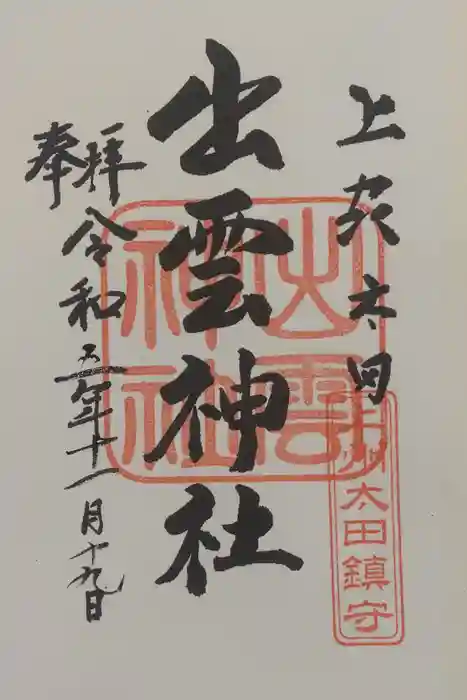 上州太田
上州太田鎮守
出雲神社
出雲
神社
奉拝
令和五年十一月十九日